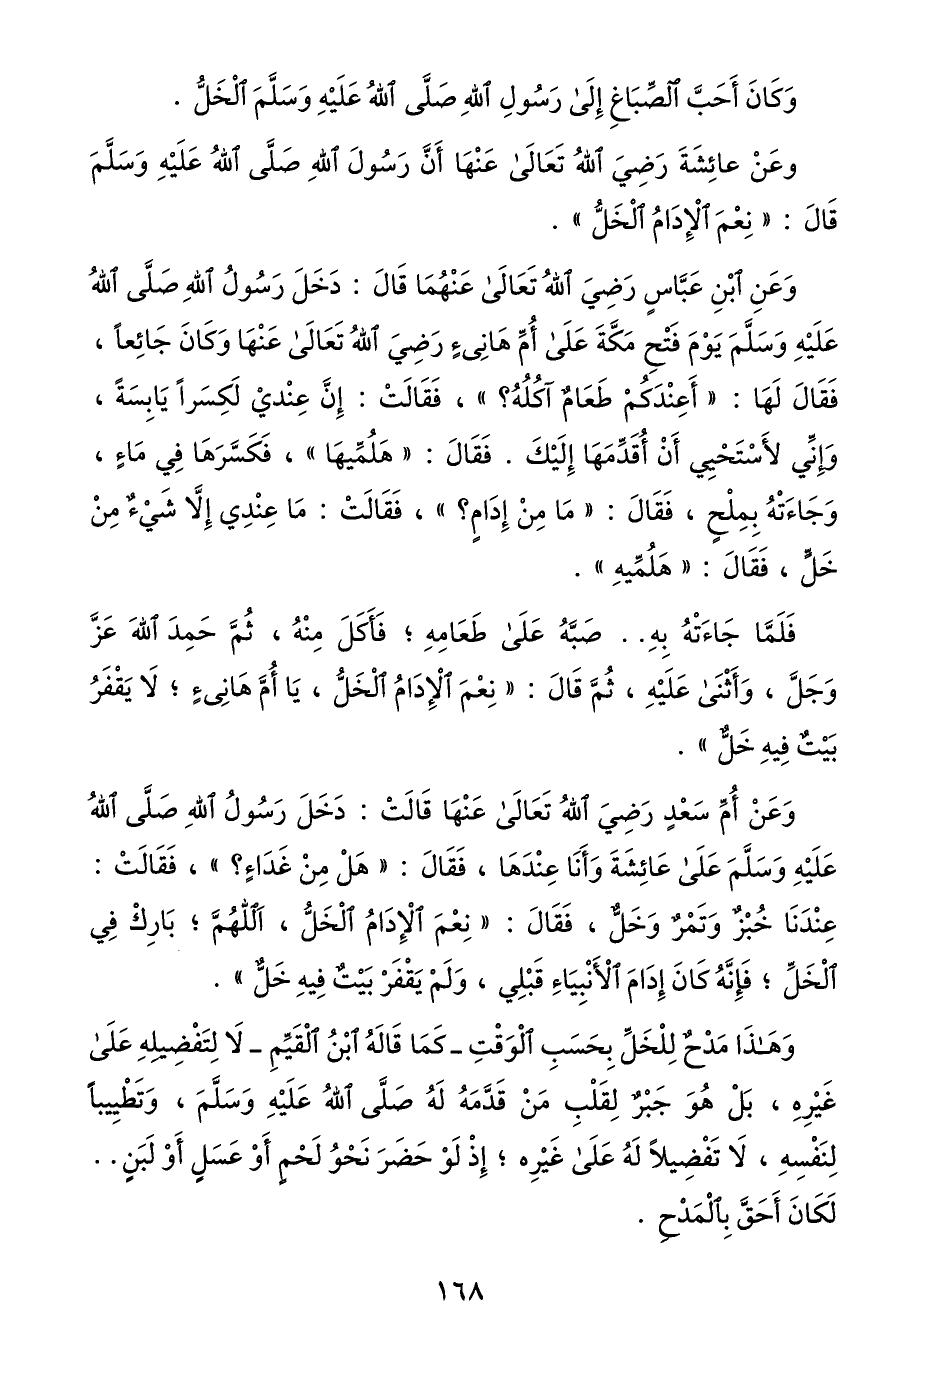 وَكَانَ أَحَبَّ ٱلصِّبَاغِ إِلَىٰ رَسُولِ ٱللهِ صَلَّى ٱللهُ عَلَيْهِ وَسَلَّمَ ٱلْخَلُّ .
وعَنْ عائِشَةَ رَضِيَ ٱللهُ تَعَالَىٰ عَنْهَا أَنَّ رَسُولَ ٱللهِ صَلَّى ٱللهُ عَلَيْهِ وَسَلَّمَ
قَالَ : « نِعْمَ ٱلْإِدَامُ ٱلْخَلُّ » .
وَعَنِ ٱبْنِ عَبَّاسٍ رَضِيَ ٱللهُ تَعَالَىٰ عَنْهُمَا قَالَ : دَخَلَ رَسُولُ ٱللهِ صَلَّى ٱللهُ
عَلَيْهِ وَسَلَّمَ يَوْمَ فَتْحِ مَكَّةَ عَلَىٰ أُمِّ هَانِىءٍ رَضِيَ ٱللهُ تَعَالَىٰ عَنْهَا وَكَانَ جَائِعاً ،
فَقَالَ لَهَا : « أَعِنْدَكُمْ طَعَامٌ آكُلُهُ؟ » ، فَقَالَتْ : إِنَّ عِنْدِيْ لَكِسَراً يَابِسَةً ،
وَإِنِّي لأَسْتَحْيِي أَنْ أُقَدِّمَهَا إِلَيْكَ . فَقَالَ : « هَلُمِّيهَا » ، فَكَسَّرَهَا فِي مَاءٍ ،
وَجَاءَتْهُ بِمِلْحٍ ، فَقَالَ : « مَا مِنْ إِدَامٍ؟ » ، فَقَالَتْ : مَا عِنْدِي إِلَّا شَيْءٌ مِنْ
خَلٍّ ، فَقَالَ : « هَلُمِّيهِ » .
فَلَمَّا جَاءَتْهُ بِهِ.. صَبَّهُ عَلَىٰ طَعَامِهِ ؛ فَأَكَلَ مِنْهُ ، ثُمَّ حَمِدَ ٱللهَ عَزَّ
وَجَلَّ ، وَأَثْنَىٰ عَلَيْهِ ، ثُمَّ قَالَ : « نِعْمَ ٱلْإِدَامُ ٱلْخَلُّ ، يَا أُمَّ هَانِىءٍ ؛ لَا يَقْفَرُ
بَيْتٌ فِيهِ خَلٌّ » .
وَعَنْ أُمِّ سَعْدٍ رَضِيَ ٱللهُ تَعَالَىٰ عَنْهَا قَالَتْ : دَخَلَ رَسُولُ ٱللهِ صَلَّى ٱللهُ
عَلَيْهِ وَسَلَّمَ عَلَىٰ عَائِشَةَ وَأَنَا عِنْدَهَا ، فَقَالَ : « هَلْ مِنْ غَدَاءٍ؟ » ، فَقَالَتْ :
عِنْدَنَا خُبْزٌ وَتَمْرٌ وَخَلٌّ ، فَقَالَ : « نِعْمَ ٱلْإِدَامُ ٱلْخَلُّ ، اَللَّهُمَّ ؛ بَارِكْ فِي
ٱلْخَلِّ ؛ فَإِنَّهُ كَانَ إِدَامَ ٱلْأَنْبِيَاءِ قَبْلِي ، وَلَمْ يَقْفَرْ بَيْتٌ فِيهِ خَلٌّ » .
وَهَـٰذَا مَدْحٌ لِلْخَلِّ بِحَسَبِ ٱلْوَقْتِ ـ كَمَا قَالَهُ ٱبْنُ ٱلْقَيِّمِ ـ لَا لِتَفْضِيلِهِ عَلَىٰ
غَيْرِهِ ، بَلْ هُوَ جَبْرٌ لِقَلْبِ مَنْ قَدَّمَهُ لَهُ صَلَّى ٱللهُ عَلَيْهِ وَسَلَّمَ ، وَتَطْيِيباً
لِنَفْسِهِ ، لَا تَفْضِيلاً لَهُ عَلَىٰ غَيْرِه ؛ إِذْ لَوْ حَضَرَ نَحْوُ لَحْمٍ أَوْ عَسَلٍ أَوْ لَبَنٍ..
لَكَانَ أَحَقَّ بِٱلْمَدْحِ .
١٦٨